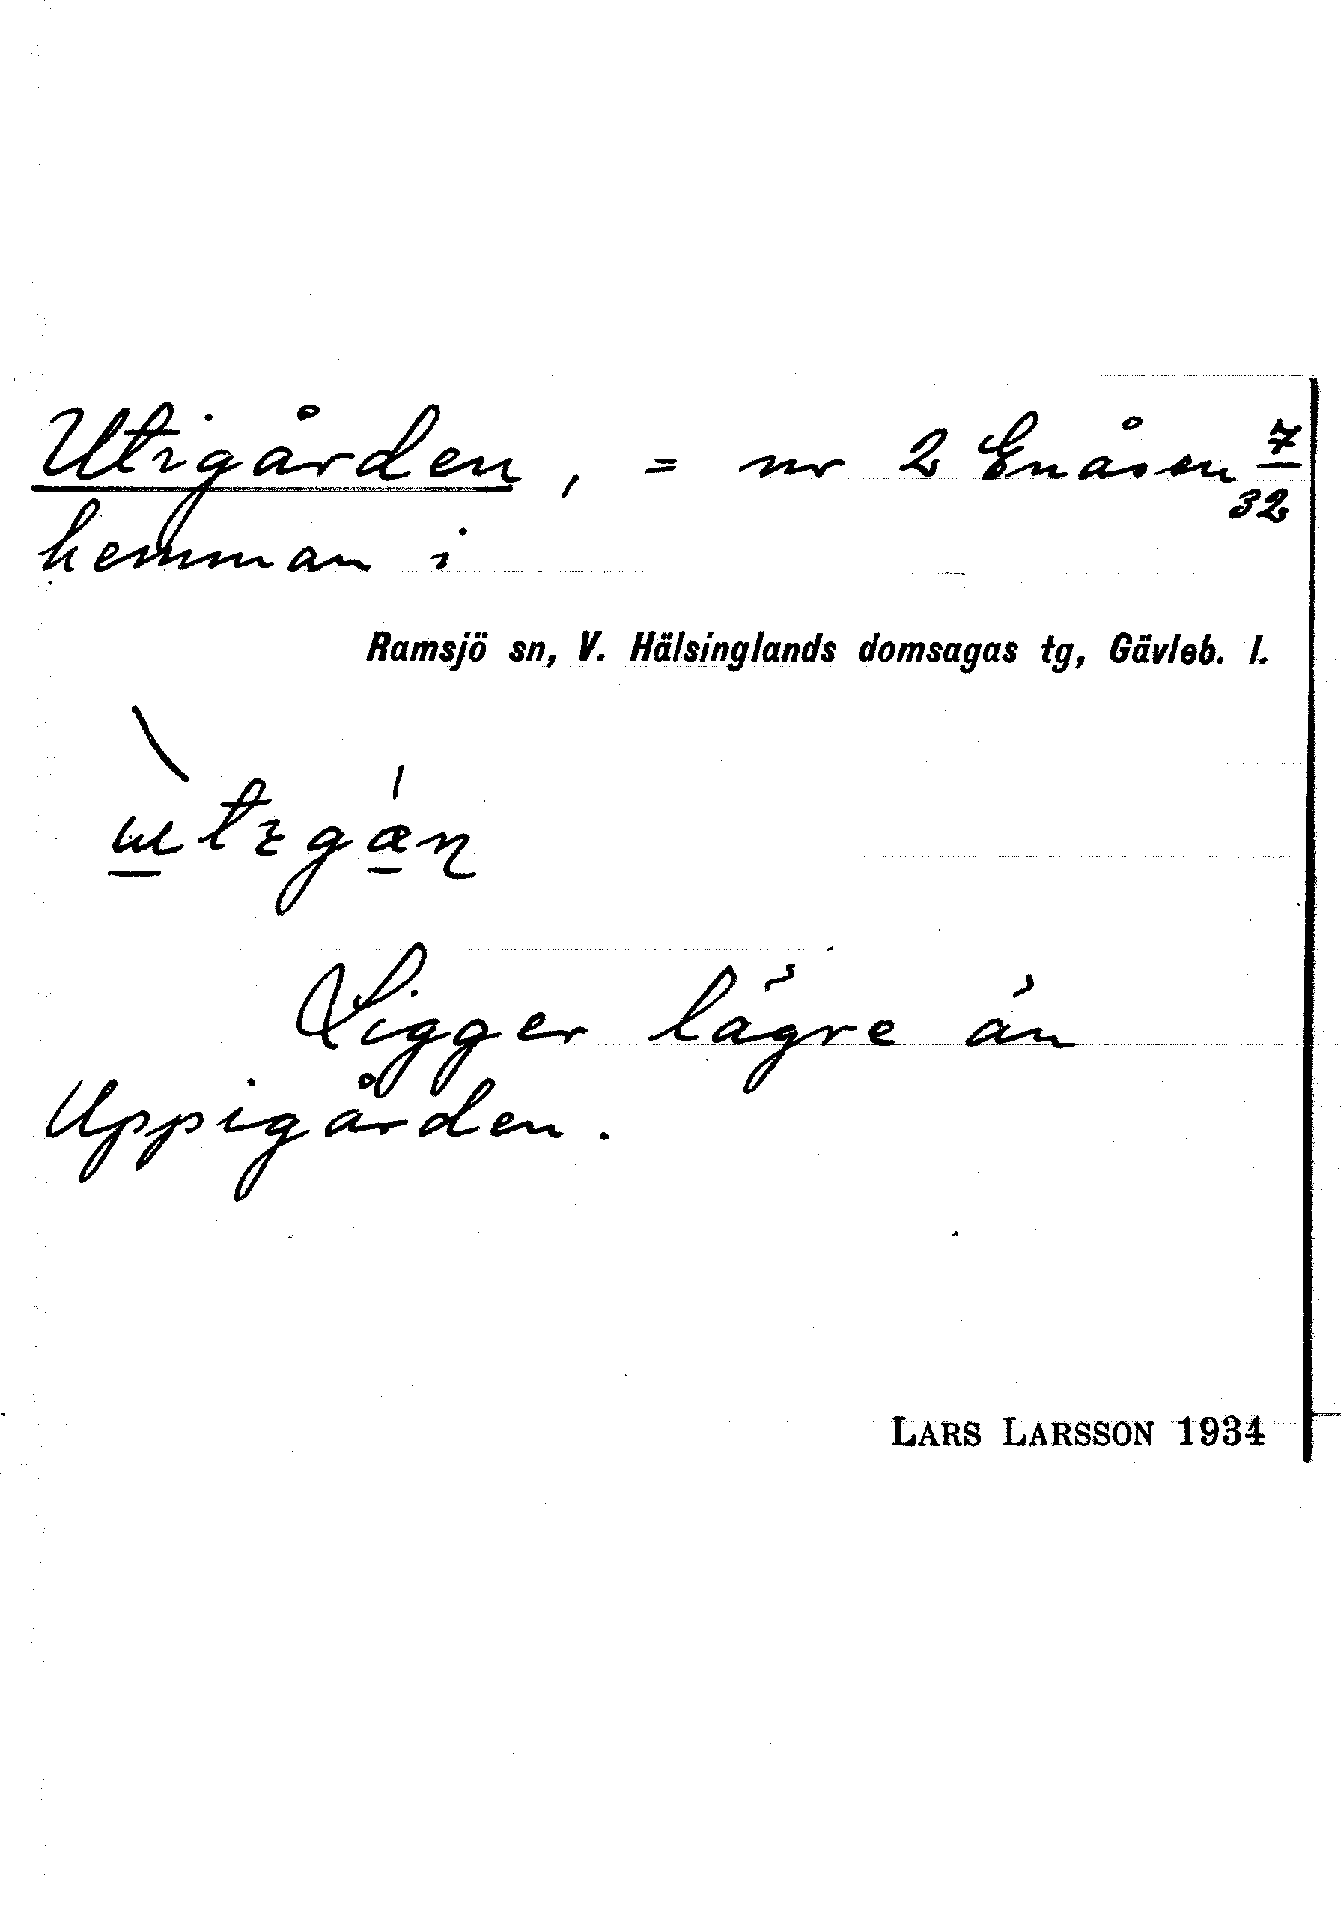 Utigården, = nr 2 Enåsen 7/32
hemman i
Ramsjö sn, V. Hälsinglands domsagas tg, Gävleb. l.
Ligger lägre än
Uppigården.
LARS LARSSON 1934